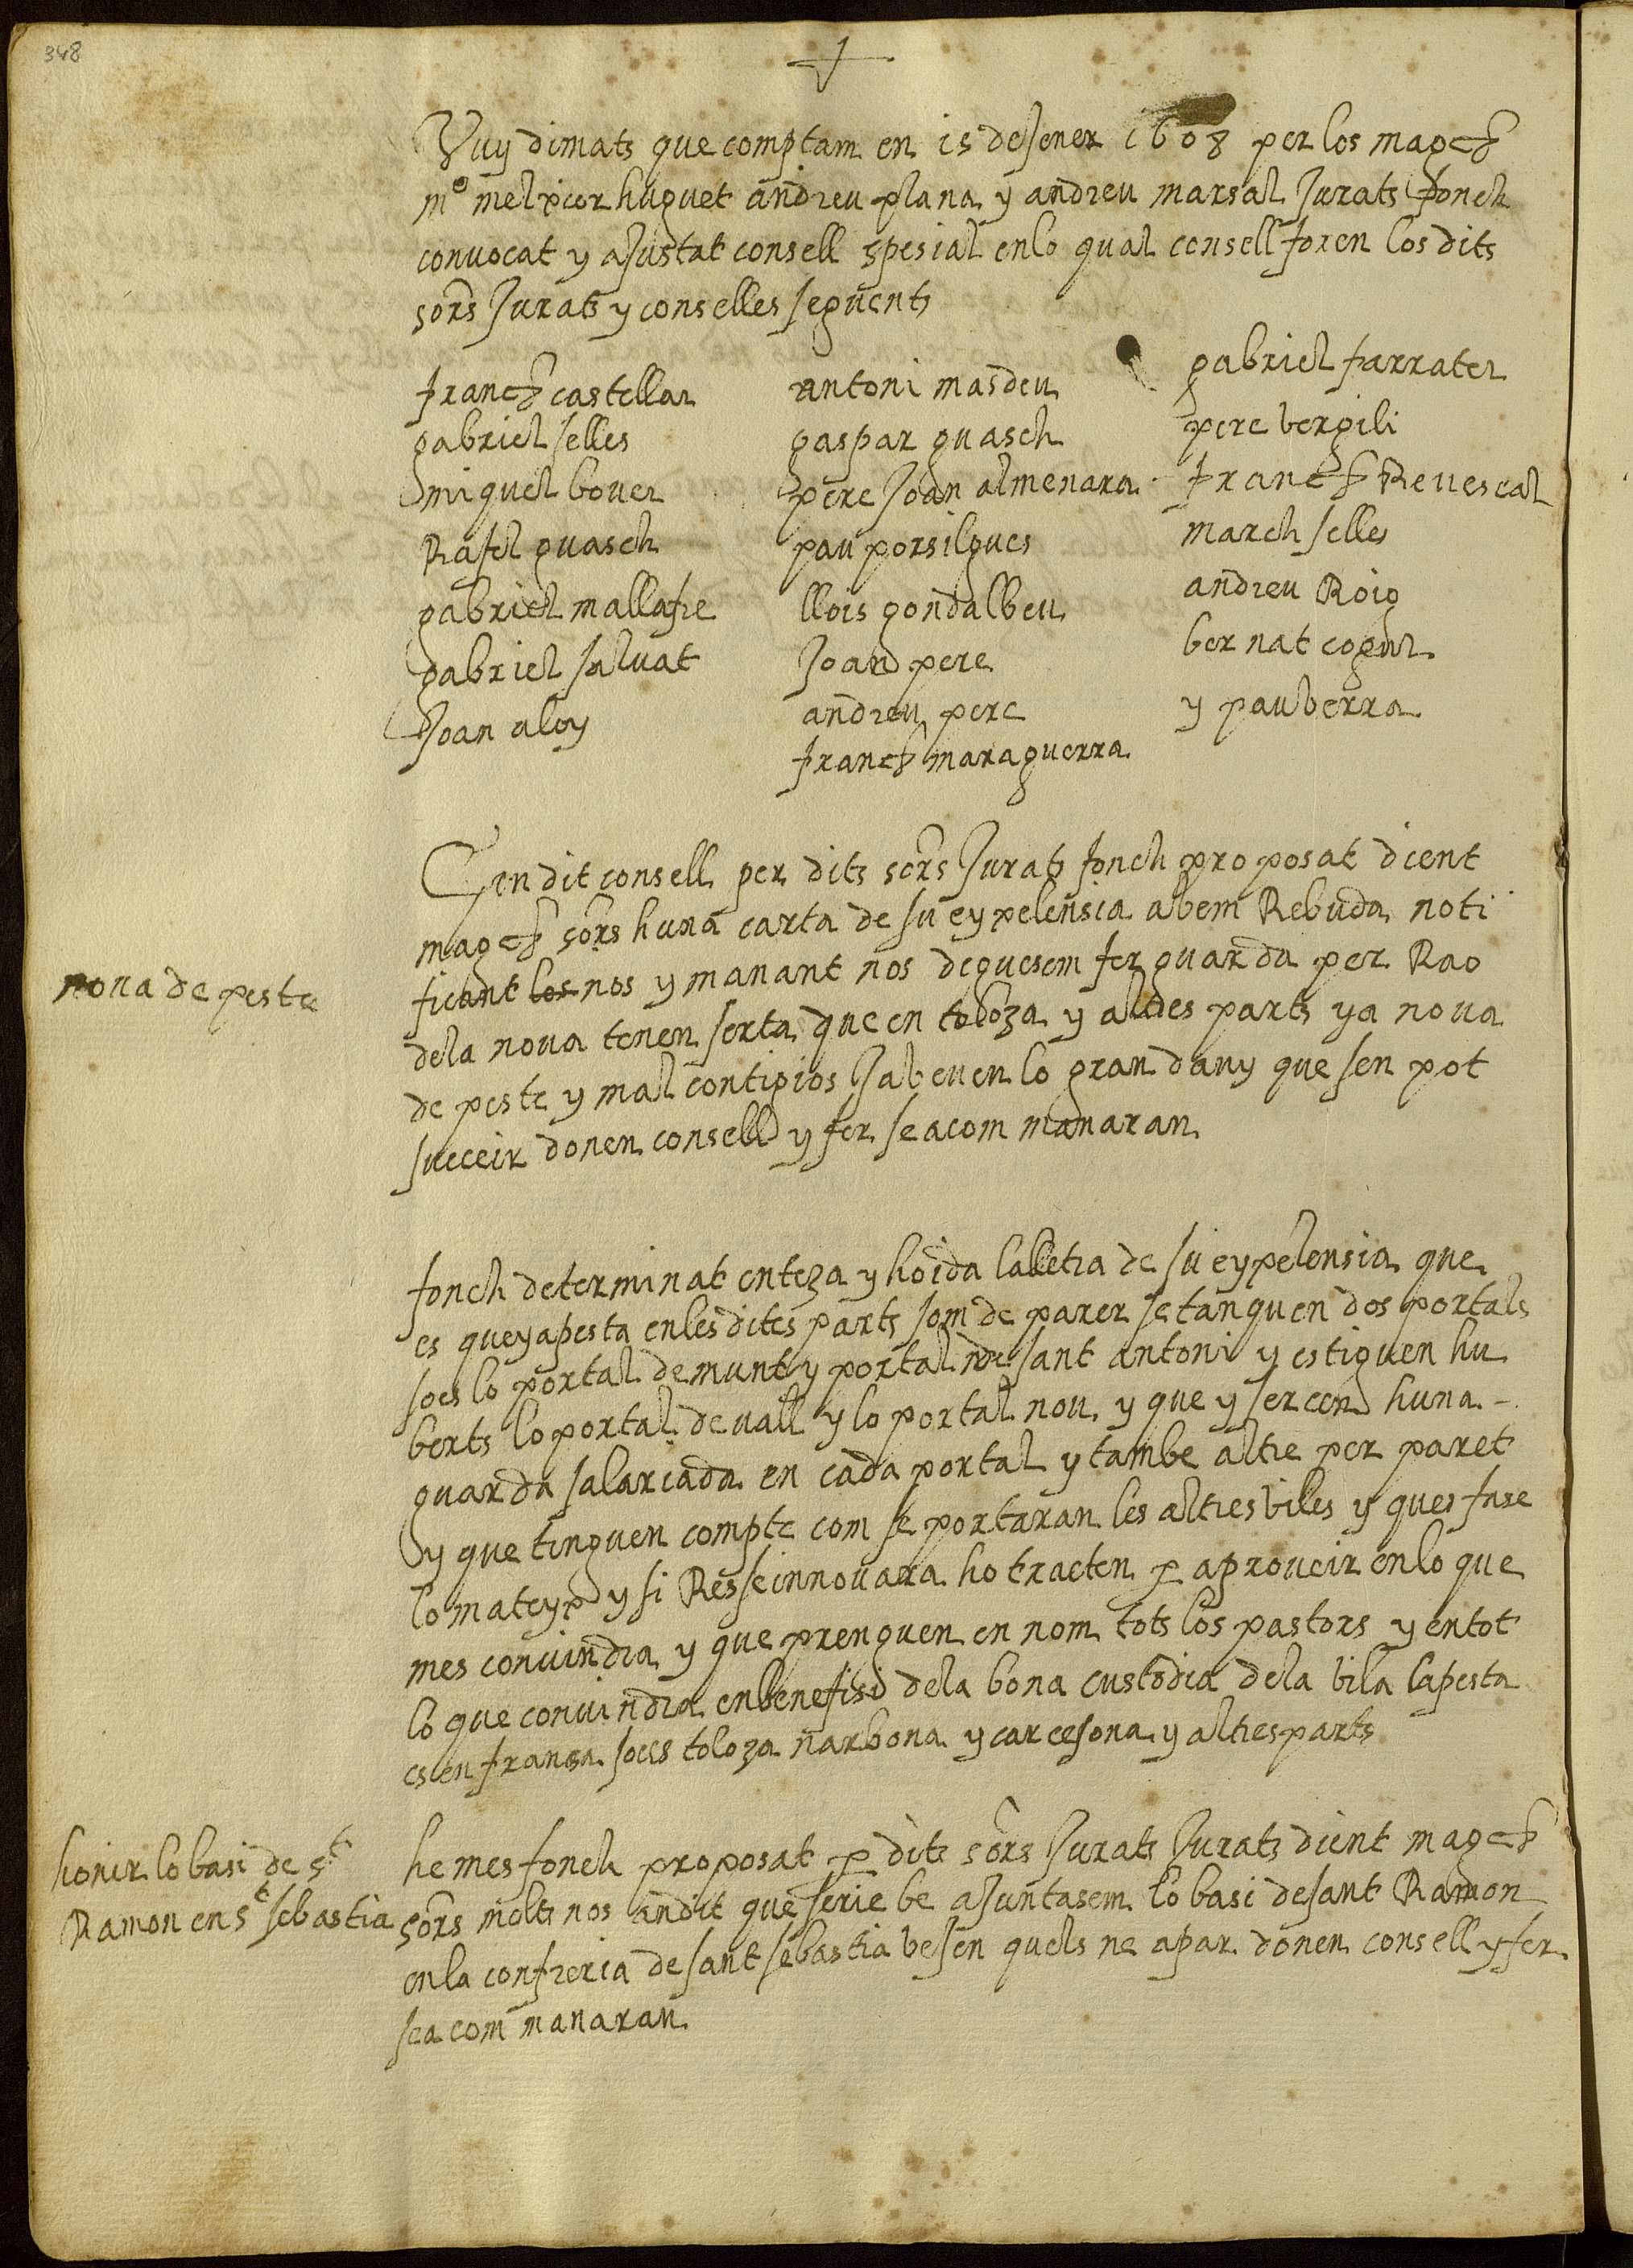 348
Vuy dimats que comptam en 15 de Jener 1608 per los magchs
mº melxior huguet andreu plana y andreu marsal Jurats fonch
convocat y aJustat consell spesial en lo qual consell foren los dits
sors Jurats y conselles seguents
franch castellar
gabriel selles
miquel bover
Rafel guasch
gabriel mallafre
gabriel salvat
Joan aloy
antoni masdeu
gaspar guasch
pere Joan almenara
pau porsilgues
llois gondalbeu
Joan pere
andreu pere
franch maraguerra
gabriel farrater
pere bergili
franch Revescal
march selles
andreu Roig
bernat cogul
y pau berra
E en dit consell per dits sors Jurats fonch proposat dient
magchs sors huna carta de su eypelensia abem Rebuda noti
nova de peste
ficant los nos y manant nos deguesem fer guarda per Rao
de la nova tenen serta que en toloza y altres parts ya nova
de peste y mal contigios Ja beuen lo gran dany que sen pot
succeir donen consell y fer se a com manaran
fonch determinat enteza y hoida la lletra de su eypelensia que
es que ya pesta en les dites parts som de parer se tanquen dos portals
so es lo portal de munt y portal de sant antoni y estiguen hu
berts lo portal de vall y lo portal nou y que y sercen huna
guarda salariada en cada portal y tambe altre per paret
y que tinguen compte com se portaran les altres viles y ques fase
lo mateyx y si Res se innovara ho tracten p aproveir en lo que
mes convindra y que prenguen en nom tots los pastors y en tot
lo que convindra en benefisi de la bona custodia de la vila la pesta
es en fransa so es toloza narbona y carcesona y altres parts
honir lo basi de st
Ramon en st sebastia
he mes fonch proposat p dits sors Jurats Jurats dient magchs
sors molts nos an dit que serie be aJuntasem lo basi de sant Ramon
en la confreria de sant sebastia veJen quels ne apar donen consell y fer
se a com manaran